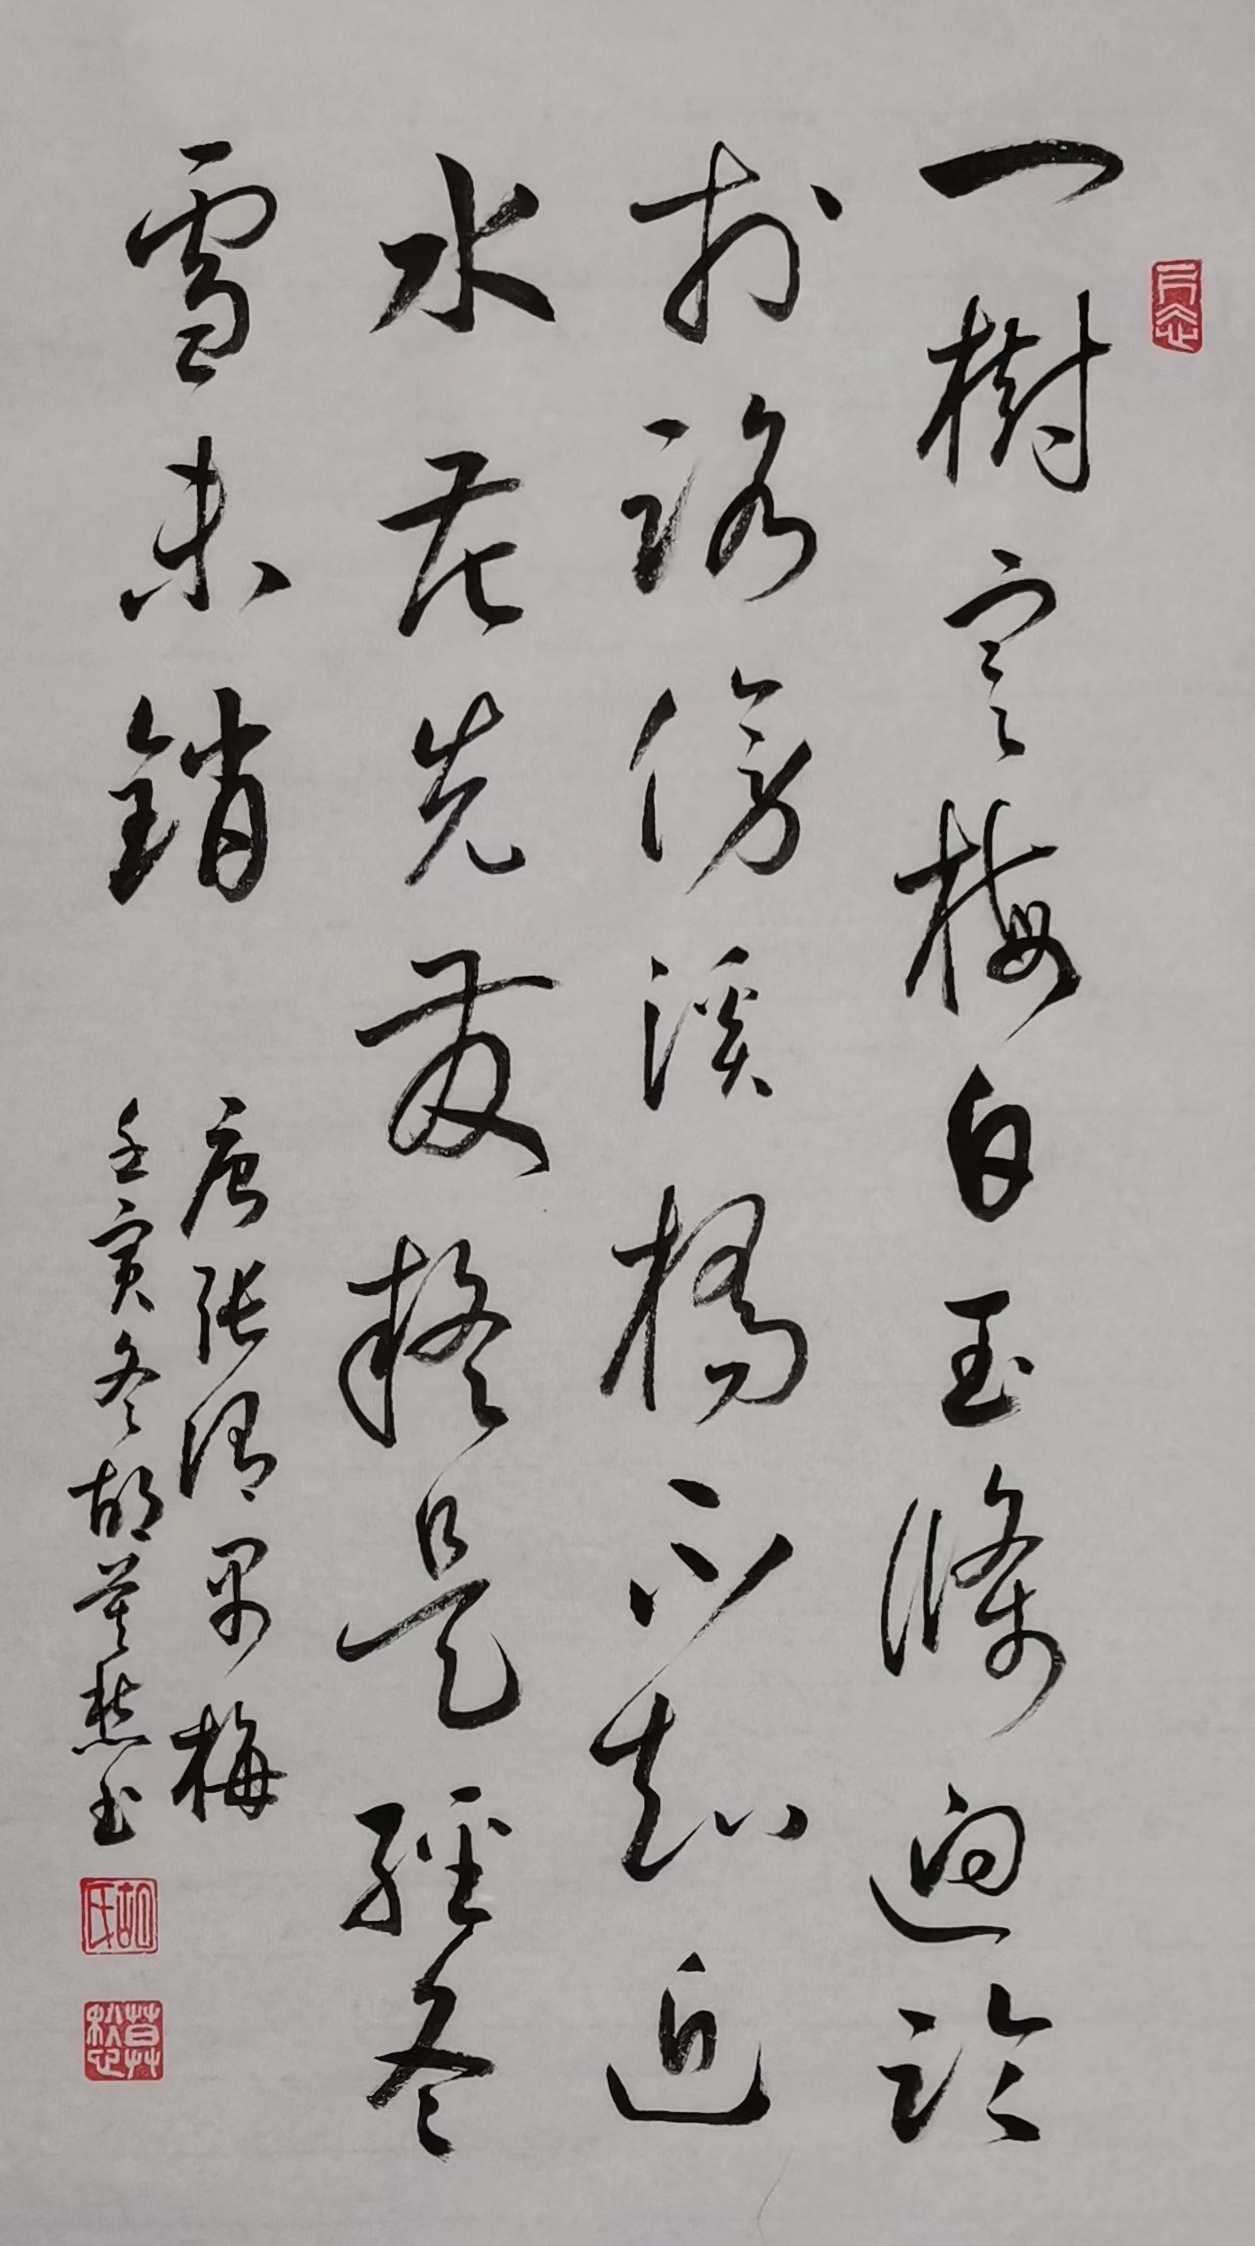 一樹寒梅白玉條迥臨
村路傍溪橋不知近
水花先發疑是經冬
雪未銷
唐張謂早梅
壬寅冬胡莫愁書
胡氏
莫愁